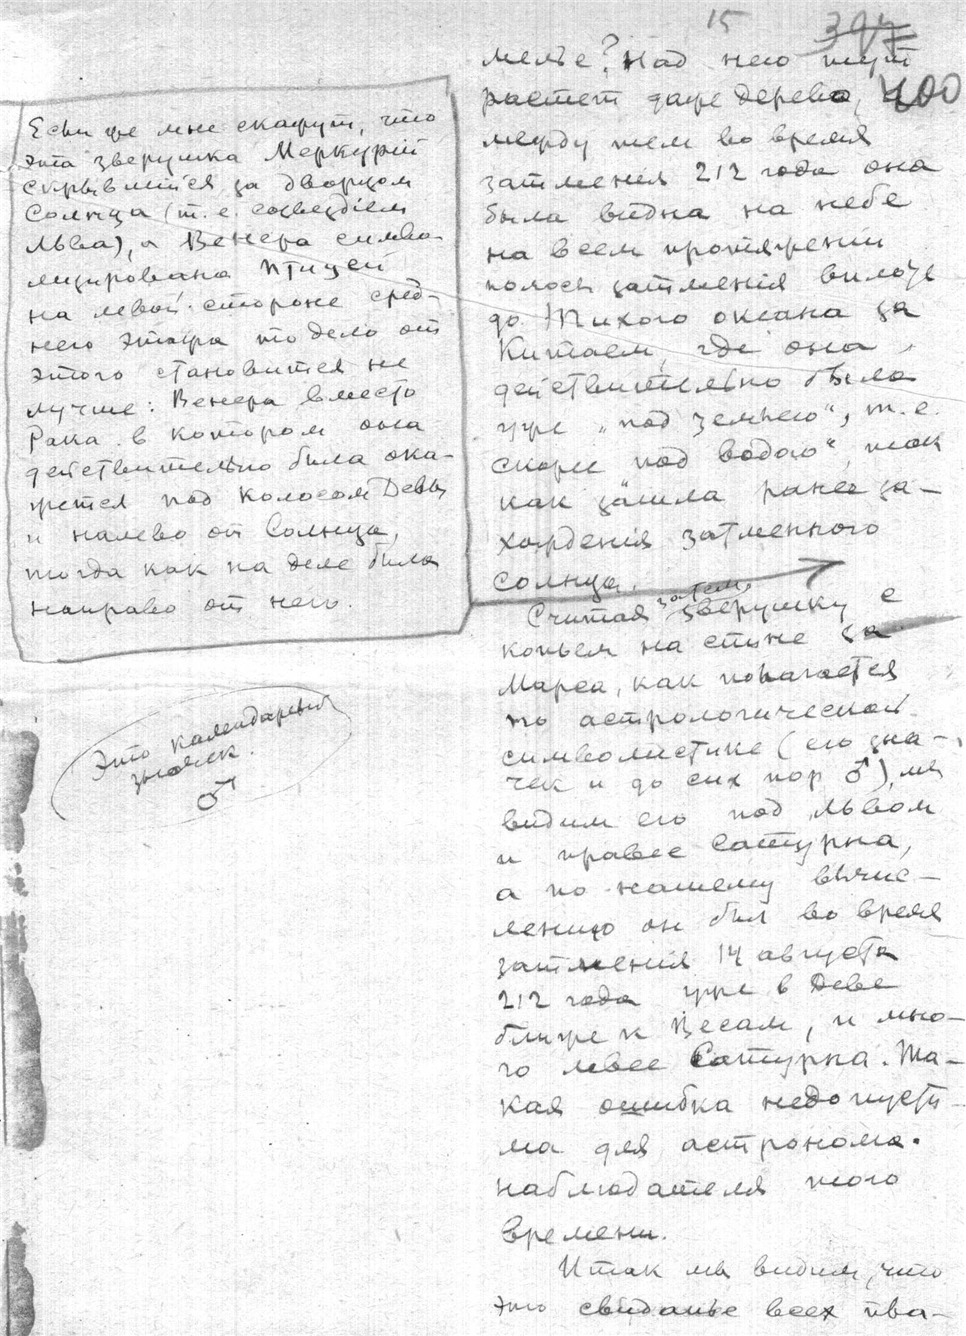 15 397
400
мелье? Над нею тут
растет даже дерево, а
между тем во время
затменія 212 года она
была видна на небе
на всем протяжении
полосы затменія вплоть
до Тихого океана за
Китаем, где она
действительно была
уже „под землею“, т.е.
скорее „под водою“, так
как зашла ранее за-
хожденія затменного
солнца.
Считая затем зверушку с
копьем на спине за
Марса, как полагается
по астрологической
символистике (его зна-
чек и до сих пор ♂), мы
видим его под Львом
и правее Сатурна,
а по нашему вычис-
лению он был во время
затменія 14 августа
212 года уже в Деве
ближе к Весам, и мно-
го левее Сатурна. Та-
кая ошибка недопусти-
ма для астронома-
наблюдателя того
времени.
Итак мы видим, что
это свиданье всех пла-
Если же мне скажут, что
эта зверушка Меркурій
скрывшійся за дворцом
Солнца (т.е. созвездіем
Льва), а Венера симво-
лизирована птицей
на левой стороне сред-
него этажа то дело от
этого становится не
лучше: Венера вместо
Рака в котором она
действительно была ока-
жется под Колосом Девы
и налево от Солнца,
тогда как на деле была
направо от него.
Это календарный
значек
♂